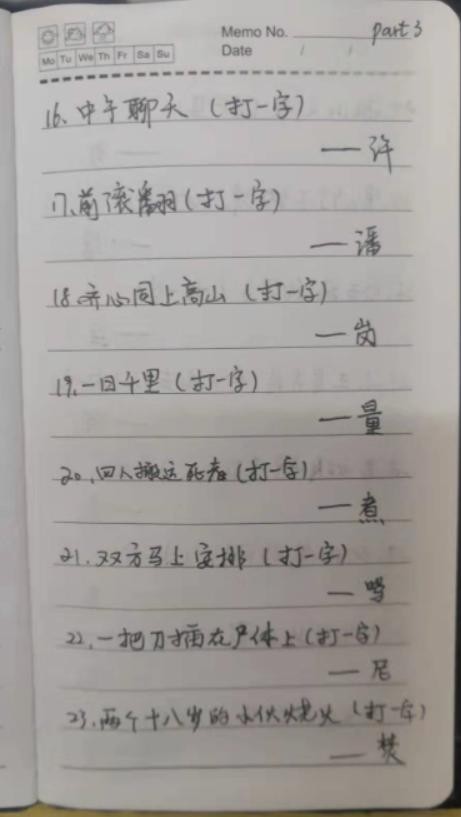 Memo No. part 3
Mo Tu We Th Fr Sa Su
Date / /
16、中午聊天（打一字）
— 许
17、前滚翻（打一字）
— 潘
18.齐心同上高山（打一字）
— 岗
19、一日千里（打一字）
— 量
20、四人搬运死者（打一字）
— 煮
21、双方马上安排（打一字）
22、一把刀插在尸体上（打一字）
— 尼
23、两个十八岁的小伙烧火（打一字）
— 焚